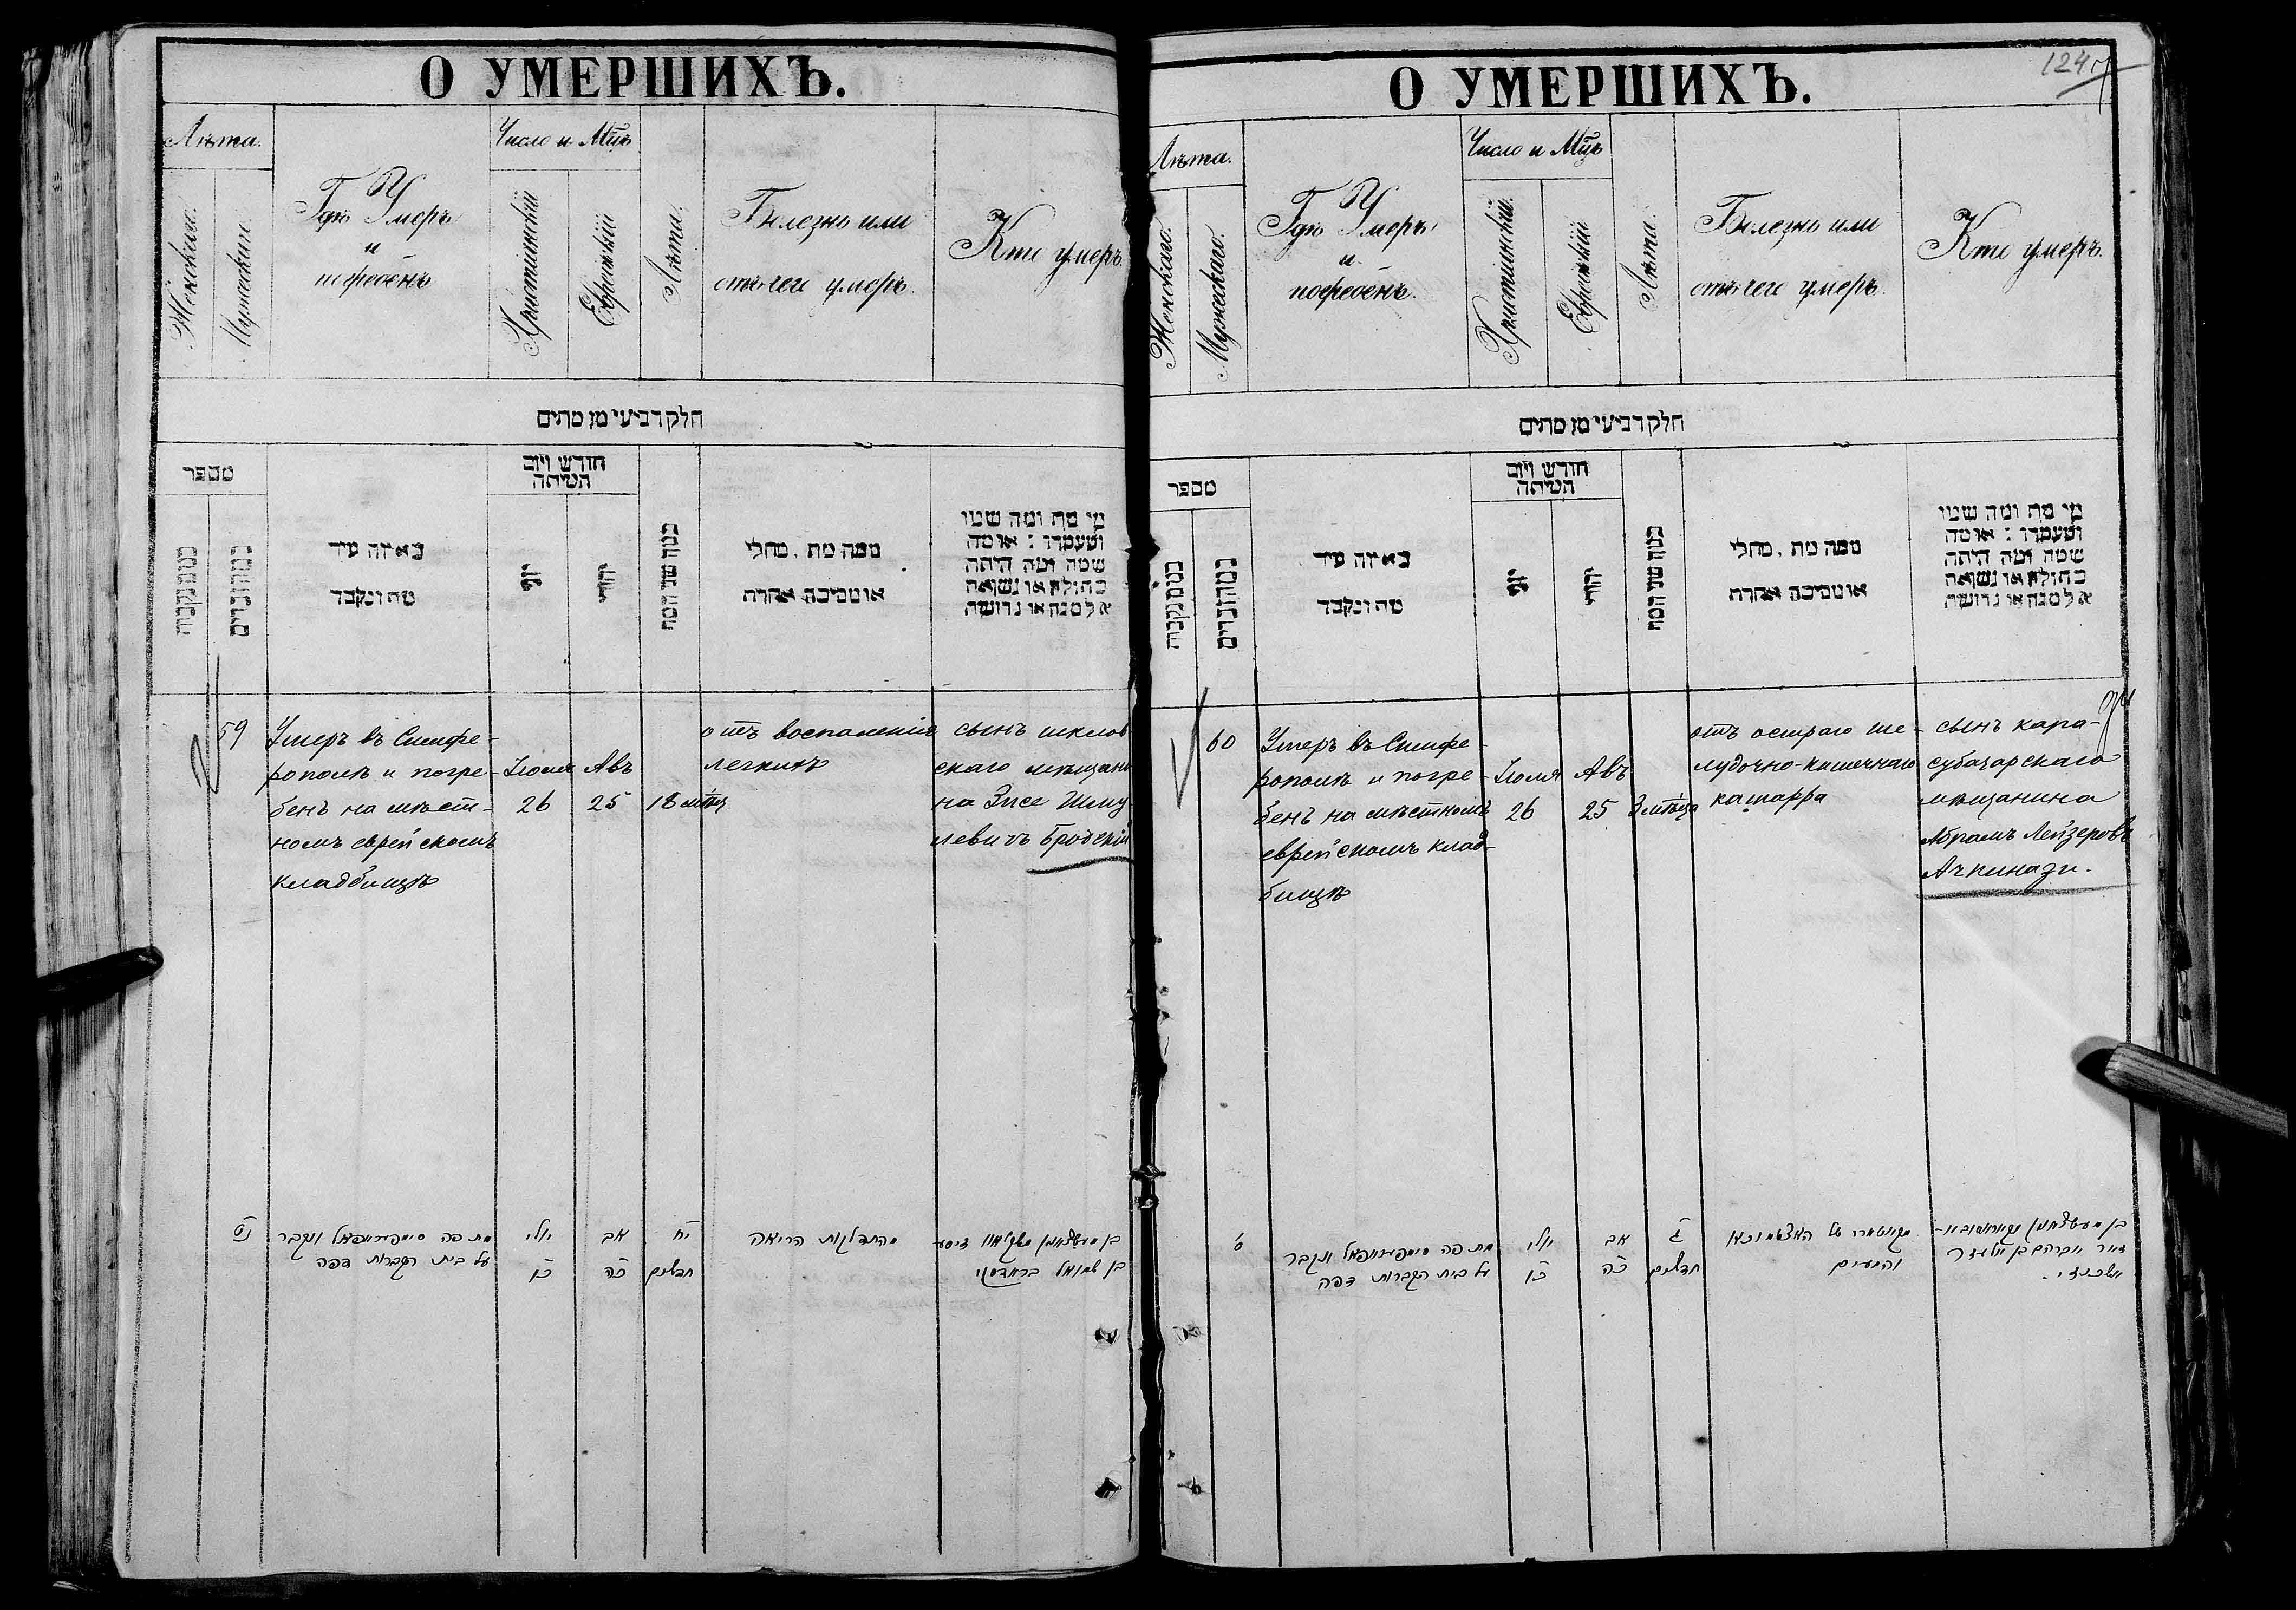 О УМЕРШИХЪ.
Лѣта.
Женскаго.
Мужескаго.
Гдѣ Умеръ
и
погребенъ
Число и Мцъ
Христіанскій
Еврейскій
Лѣта.
Болезнь или
отъ чего умеръ.
Кто умеръ.
חלק רביעי מן מתים
מספר
באיזה עיר
מת ונקבר
חודש ויום
המיתה
יוני
יהודי
ממה מת, מחלי
או מסיבה אחרת
מי מת ומה שמו
ומעמדו : או מה
שמה ומה היתה
בתולה או נשואה
אלמנה או גרושה
59
Умеръ въ Симфе-
рополѣ и погре-
бенъ на мѣст-
номъ еврейскомъ
кладбищѣ
Іюля
26
Авъ
25
18 мѣсяц
отъ воспаленія
легкихъ
сынъ шклов
скаго мѣщани
на Зисе Шму
левичъ Бродскій
נט
מת פה סימפעראפאל ונקבר
על בית הקברות דפה
יולי
כו
אב
כה
יח
חדשים
מהתדלקות הריאה
בן שמואל בראדסקי
О УМЕРШИХЪ.
124
Лѣта.
Женскаго.
Мужескаго.
Гдѣ Умеръ
и
погребенъ.
Число и Мцъ
Христіанскій.
Еврейскій
Лѣта.
Болезнь или
отъ чего умеръ.
Кто умеръ.
חלק רביעי מן מתים
מספר
באיזה עיר
מת ונקבר
חודש ויום
המיתה
יוני
יהודי
ממה מת, מחלי
או מסיבה אחרת
מי מת ומה שמו
ומעמדו : או מה
שמה ומה היתה
בתולה או נשואה
אלמנה או גרושה
60
Умеръ въ Симфе-
рополѣ и погре-
бенъ на мѣстномъ
еврейскомъ клад-
бищѣ
Іюля
26
Авъ
25
3 мѣсяца
отъ остраго же-
лудочно-кишечнаго
катарра
сынъ кара-
субазарскаго
мѣщанина
Абрамъ Лейзеровъ
Ачкинази.
ס
מת פה סימפעראפאל ונקבר
על בית הקברות דפה
יולי
כו
אב
כה
ג
חדשים
והמעים
אברהם בן אלעזר
אשכנזי.